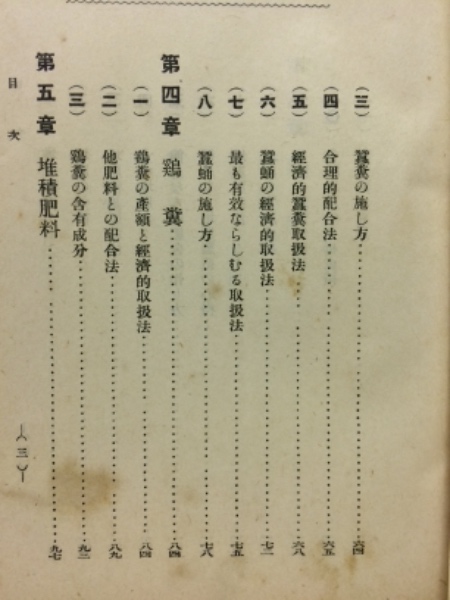 (三) 蠶糞の施し方……六四
(四) 合理的配合法……六五
(五) 經濟的蠶糞取扱法……六八
(六) 蠶蛹の經濟的取扱法……七二
(七) 最も有效ならしむる取扱法……七五
(八) 蠶蛹の施し方……七八
第四章 鷄糞……八四
(一) 鷄糞の產額と經濟的取扱法……八四
(二) 他肥料との配合法……八九
(三) 鷄糞の含有成分……九三
第五章 堆積肥料……九七
目次
(三)